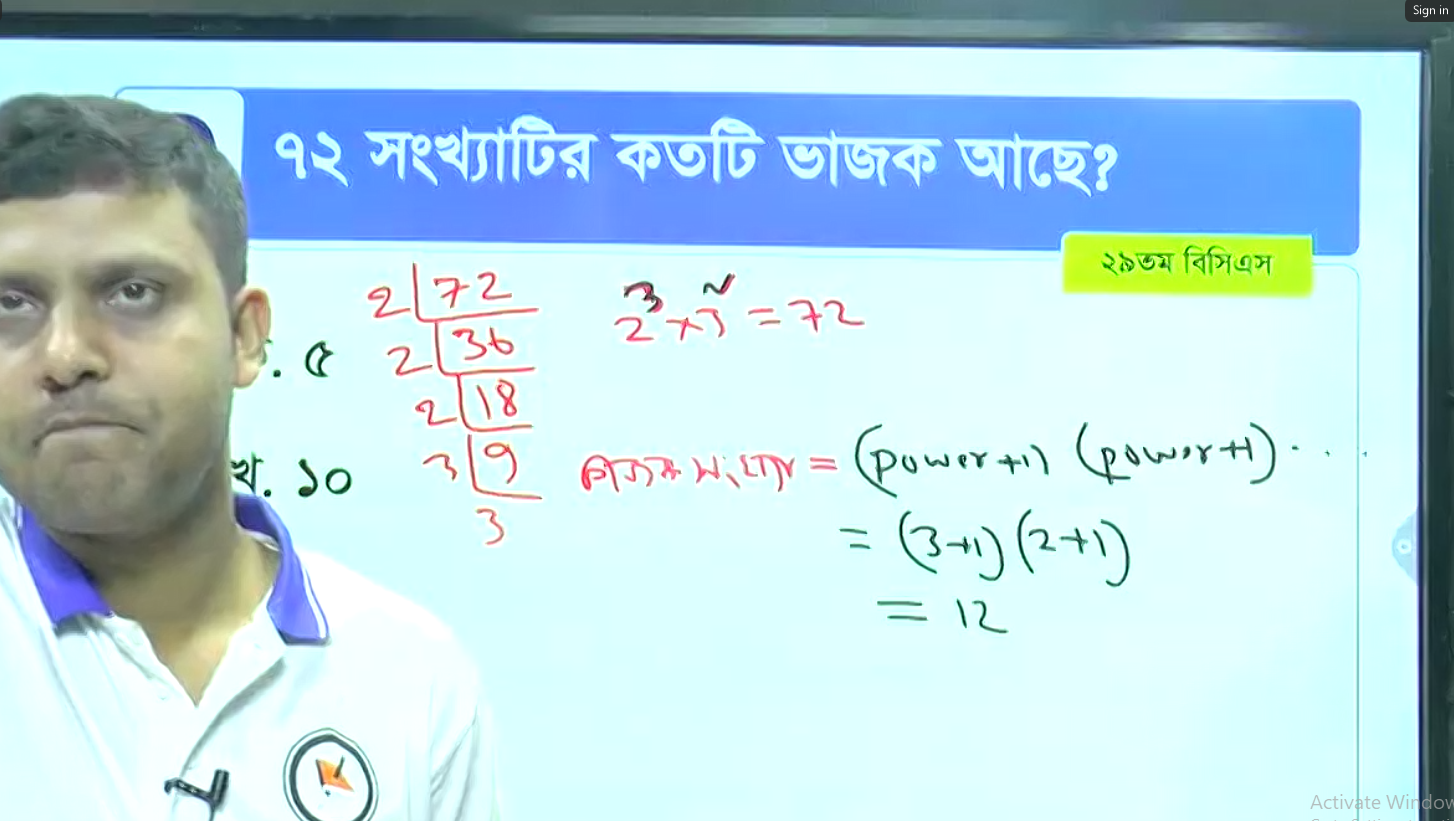 Sign in
৭২ সংখ্যাটির কতটি ভাজক আছে?
২৯তম বিসিএস
2 72
2 36
2 18
3 9
3
2³×3² = 72
. ৫
খ. ১০
= (power+1) (power+1) ...
= (3+1) (2+1)
= 12
Activate Window